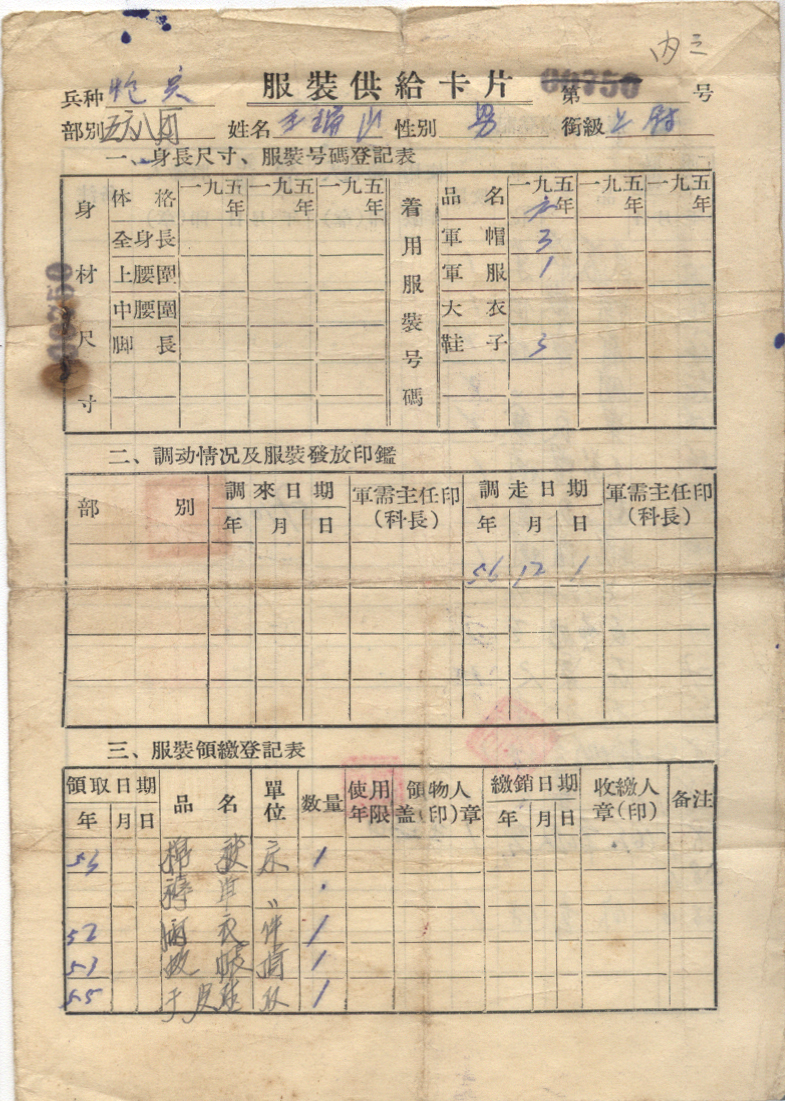 内三
兵种 炮兵 服裝供給卡片 第 00750 号
部别 姓名 王 山 性别 男 銜級 上尉
一、身長尺寸、服裝号碼登記表
身材尺寸 体格 一九五年 一九五年 一九五年 着用服裝号碼 品名 一九五六年 一九五年 一九五年
全身長 軍帽 3
上腰圍 軍服 1
中腰圍 大衣
脚長 鞋子 3
00750
二、調动情况及服裝發放印鑑
部别 調來日期 軍需主任印(科長) 調走日期 軍需主任印(科長)
年 月 日 年 月 日
56 12 1
三、服裝領繳登記表
領取日期 品名 單位 数量 使用年限 領物人蓋(印)章 繳銷日期 收繳人章(印) 备注
年 月 日 年 月 日
54 棉被 床 1
褥单 〃
52 雨衣 件 1
53 蚊帐 頂 1
55 皮鞋 双 1